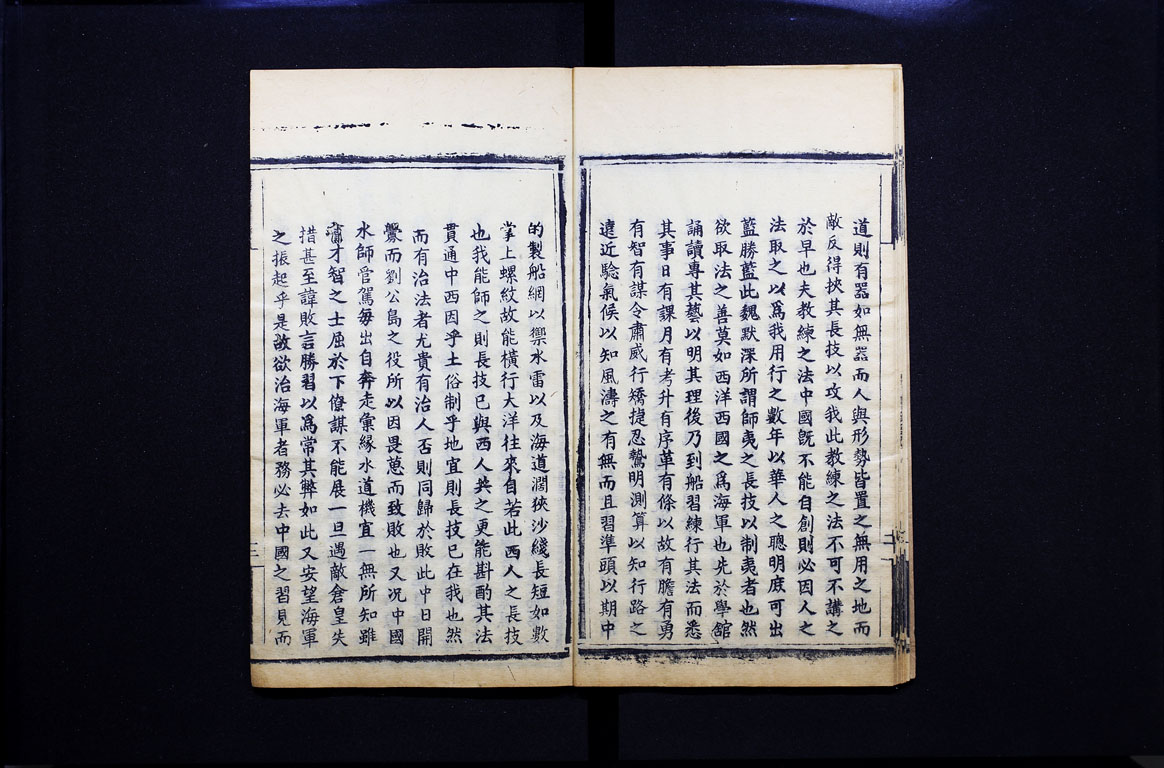 道則有器如無器而人與形勢皆置之無用之地而
敵反得挾其長技以攻我此教練之法不可不講之
於早也夫教練之法中國旣不能自創則必因人之
法取之以爲我用行之數年以華人之聰明庶可出
藍勝藍此魏默深所謂師夷之長技以制夷者也然
欲取法之善莫如西洋西國之爲海軍也先於學舘
誦讀專其藝以明其理後乃到船習練行其法而悉
其事日有課月有考升有序革有條以故有膽有勇
有智有謀令肅威行矯捷忍鷙明測算以知行路之
遠近騐氣候以知風濤之有無而且習準頭以期中
的製船網以禦水雷以及海道濶狹沙綫長短如數
掌上螺紋故能橫行大洋往來自若此西人之長技
也我能師之則長技已與西人共之更能斟酌其法
貫通中西因乎土俗制乎地宜則長技已在我也然
而有治法者尤貴有治人否則同歸於敗此中日開
釁而劉公島之役所以因畏葸而致敗也又况中國
水師管駕每出自奔走夤緣水道機宜一無所知雖
才智之士屈於下僚謀不能展一旦遇敵倉皇失
措甚至諱敗言勝習以爲常其弊如此又安望海軍
之振起乎是故欲治海軍者務必去中國之習見而
二
三